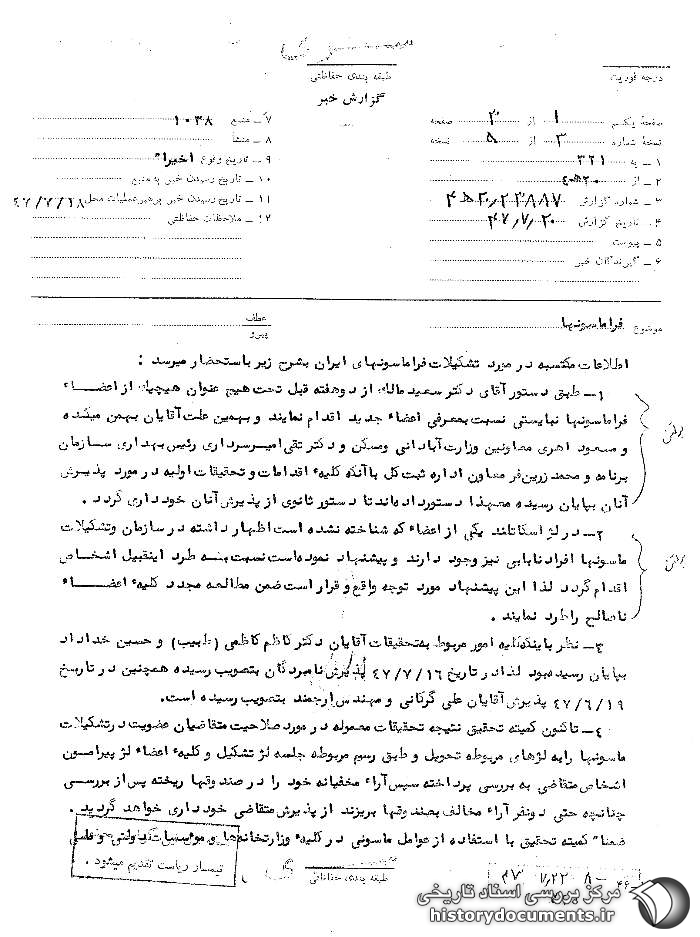 طبقه بندی حفاظتی
گزارش خبر
درجه فوریت
صفحهٔ یکم ۱ از ۲ صفحه
نسخهٔ شماره ۳ از ۵ نسخه
۱ ـ به ۳۲۱
۲ ـ از ۲۰ه۴
۳ ـ شماره گزارش ۲۰ه۴/۲۳۸۸۷
۴ ـ تاریخ گزارش ۴۷/۷/۲۰
۵ ـ پیوست
۶ ـ گیرندگان خبر
۷ ـ منبع ۱۰۳۸
۸ ـ منشأ
۹ ـ تاریخ وقوع اخیرا"
۱۰ ـ تاریخ رسیدن خبر به منبع
۱۱ ـ تاریخ رسیدن خبر برهبر عملیات محل ۴۷/۷/۱۸
۱۲ ـ ملاحظات حفاظتی
موضوع فراماسونها
عطف
پیرو
اطلاعات مکتسبه در مورد تشکیلات فراماسونهای ایران بشرح زیر باستحضار میرسد :
۱ـ طبق دستور آقای دکتر سعید مالک از دوهفته قبل تحت هیچ عنوان هیچیک از اعضاء
فراماسونها نبایستی نسبت بمعرفی اعضاء جدید اقدام نمایند و بهمین علت آقایان بهمن
و مسعود اهری معاونین وزارت آبادانی ومسکن و دکتر تقی امیرسرداری رئیس بهداری سازمان
برنامه و محمد زرین‌فر معاون اداره ثبت کل باآنکه کلیهء اقدامات و تحقیقات اولیه در مورد پذیرش
آنان بپایان رسیده معهذا دستور داده‌اند تا دستور ثانوی از پذیرش آنان خودداری گردد .
۲ـ در لژ اسکاتلند یکی از اعضاء که شناخته نشده است اظهار داشته در سازمان وتشکیلات
ماسونها افراد نابابی نیز وجود دارند و پیشنهاد نموده‌است نسبت به طرد اینقبیل اشخاص
اقدام گردد لذا این پیشنهاد مورد توجه واقع و قرار است ضمن مطالعه مجدد کلیهء اعضاء
ناصالح را طرد نمایند .
۳ـ نظر باینکه کلیه امور مربوط به تحقیقات آقایان دکتر کاظم کاظمی (طبیب) و حسین خداداد
بپایان رسیده بود لذا در تاریخ ۴۷/۷/۱۶ پذیرش نامبردگان بتصویب رسیده همچنین در تاریخ
۴۷/۶/۱۹ پذیرش آقایان علی گرگانی و مهندس ارجمند بتصویب رسیده است.
۴ـ تاکنون کمیته تحقیق نتیجه تحقیقات معموله در مورد صلاحیت متقاضیان عضویت در تشکیلات
ماسونها را به لژهای مربوطه تحویل و طبق رسم مربوطه جلسه لژ تشکیل و کلیهء اعضاء لژ پیرامون
اشخاص متقاضی به بررسی پرداخته سپس آراء مخفیانه خود را در صندوقها ریخته پس از بررسی
چنانچه حتی دونفر آراء مخالف بصندوقها بریزند از پذیرش متقاضی خودداری خواهد گردید .
ضمنا" کمیته تحقیق با استفاده از عوامل ماسونی در کلیهء وزارتخانه‌ها و موسسات دولتی و
تیمسار ریاست تقدیم میشود .
طبقه بندی حفاظتی
مرکز بررسی اسناد تاریخی
historydocuments.ir